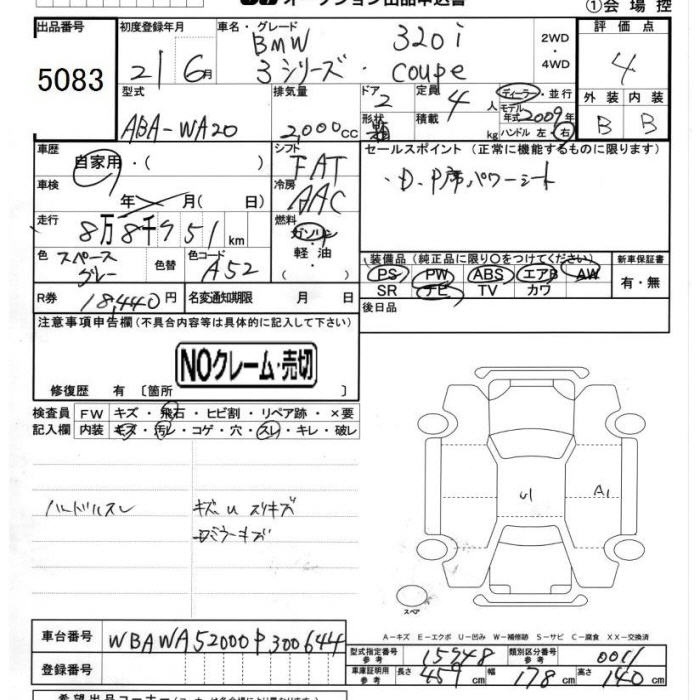 オークション出品申込書
①会場控
出品番号 5083
初度登録年月 21 6月
車名・グレード BMW 320i
3シリーズ・coupe
2WD
・
4WD
評価点 4
外装 B 内装 B
型式 ABA-WA20
排気量 2,000cc
ドア 2
形状
定員 4人
積載 kg
ディーラー・並行
モデル年式 2009年
ハンドル 左・右
車歴 自家用・( )
シフト FAT
冷房 AAC
セールスポイント (正常に機能するものに限ります)
・D.P席パワーシート
車検 年 月(日)
走行 8万8千951km
燃料 ガソリン・軽油・( )
色 スペースグレー
色替
色コード A52
装備品(純正品に限り○をつけてください)
PS PW ABS エアB AW
SR ナビ TV カワ
新車保証書
有・無
R券 18,440円
名変通知期限 月 日
後日品
注意事項申告欄(不具合内容等は具体的に記入して下さい)
NOクレーム・売切
修復歴 有 〔箇所 〕
検査員記入欄
FW キズ・飛石・ヒビ割・リペア跡・×要
内装 キズ・汚レ・コゲ・穴・スレ・キレ・破レ
ハンドルスレ
キズU スリキズ
ミラーキズ
U1
A1
スペア
A-キズ E-エクボ U-凹み W-補修跡 S-サビ C-腐食 XX-交換済
車台番号 WBAWA52000P300644
登録番号
型式指定番号 参考 15948
類別区分番号 参考 0011
車庫証明用 参考 長さ 459cm 幅 178cm 高さ 140cm
希望出品コーナー